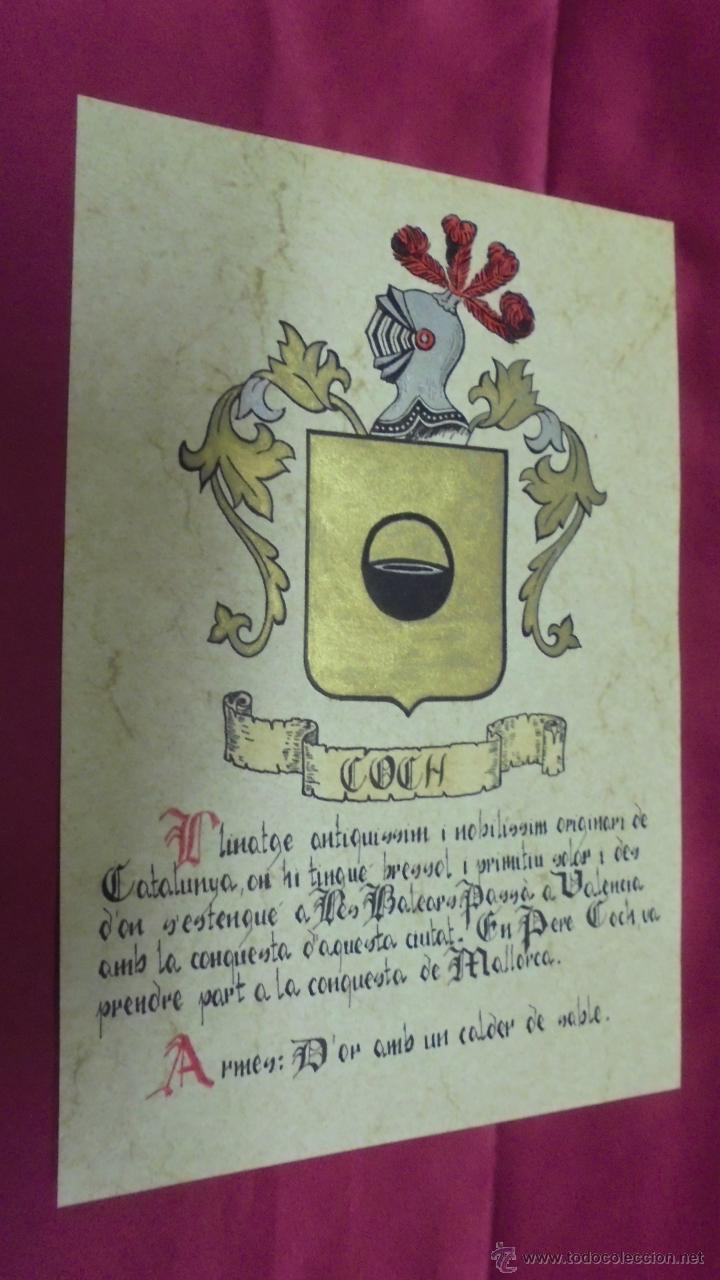 COCH
Llinatge antiquissim i nobilissim originari de
Catalunya, on hi tingué bressol i primitiu solar i des
d'on s'estengué a les Balears. Passà a Valencia
amb la conquesta d'aquesta ciutat. En Pere Coch va
prendre part a la conquesta de Mallorca.
Armes: D'or amb un calder de sable.
www.todocoleccion.net